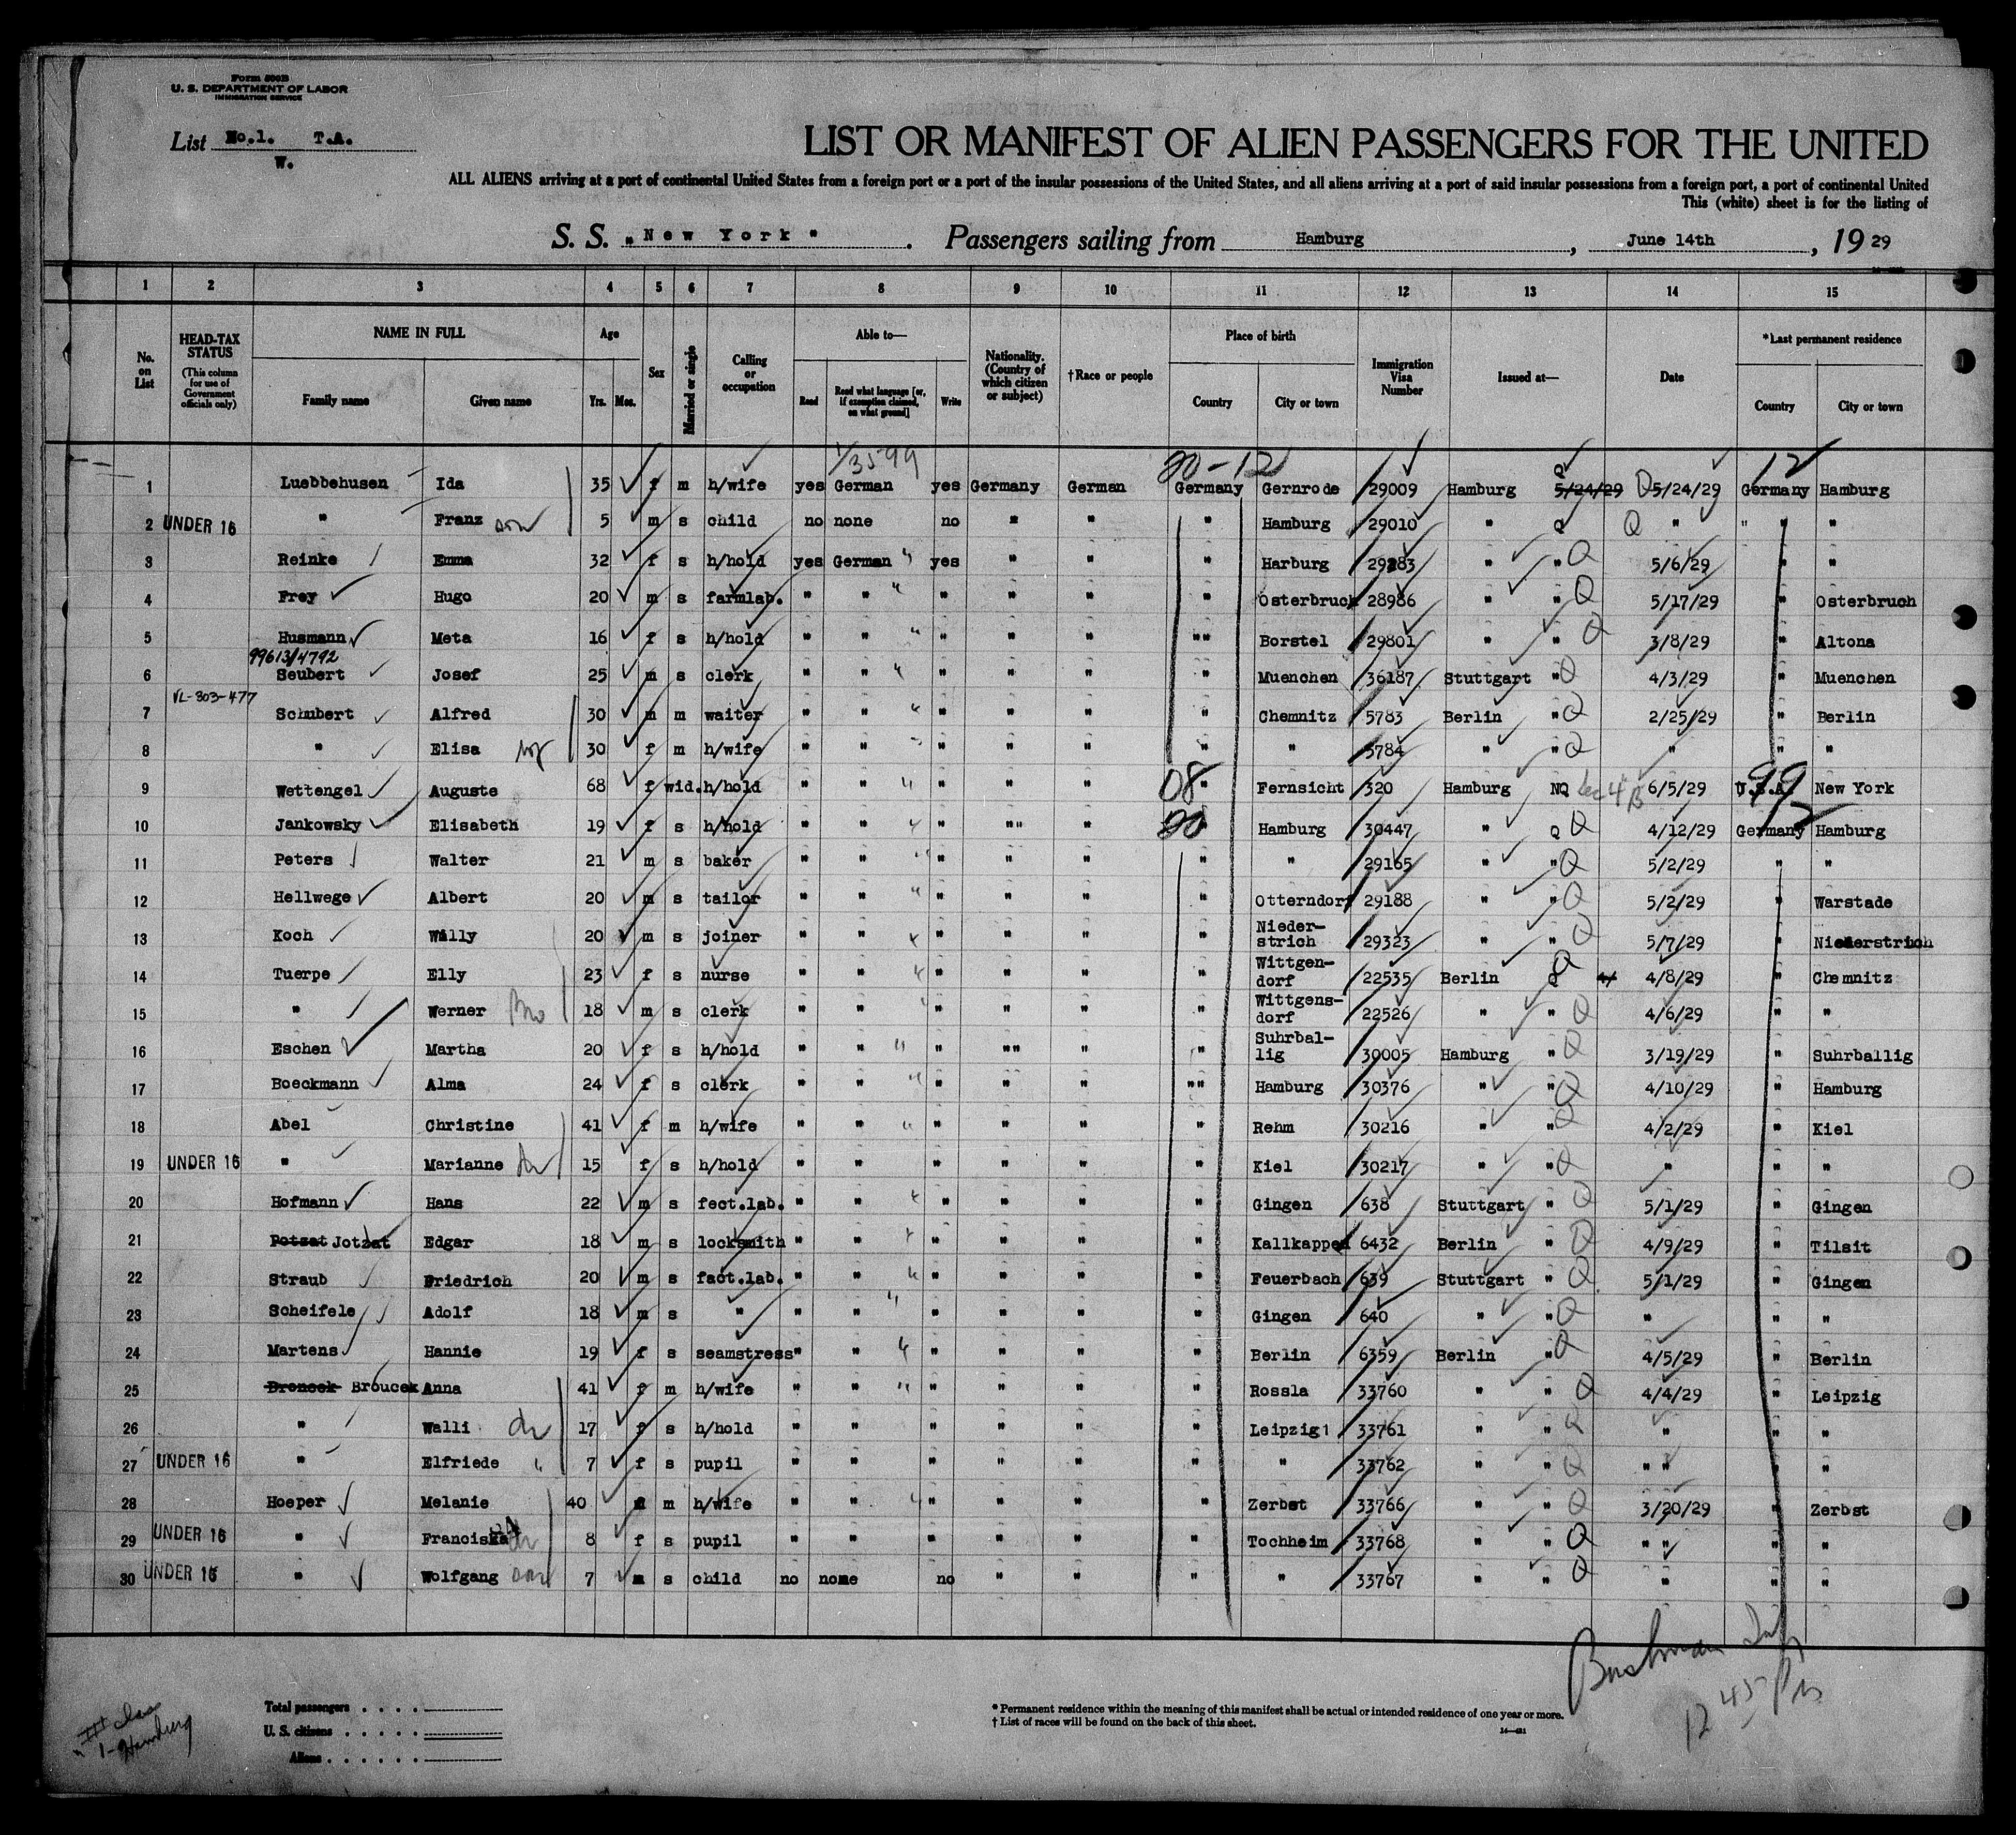 Form 500B
U. S. DEPARTMENT OF LABOR
IMMIGRATION SERVICE
List No.1. T.A.
W.
LIST OR MANIFEST OF ALIEN PASSENGERS FOR THE UNITED
ALL ALIENS arriving at a port of continental United States from a foreign port or a port of the insular possessions of the United States, and all aliens arriving at a port of said insular possessions from a foreign port, a port of continental United
This (white) sheet is for the listing of
S. S. "New York". Passengers sailing from Hamburg, June 14th, 1929
1 2 3 4 5 6 7 8 9 10 11 12 13 14 15
No. on List
HEAD-TAX STATUS (This column for use of Government officials only)
NAME IN FULL Family name Given name
Age Yrs. Mos.
Sex
Married or single
Calling or occupation
Able to— Read Read what language [or, if exemption claimed, on what ground] Write
Nationality. (Country of which citizen or subject)
†Race or people
Place of birth Country City or town
Immigration Visa Number
Issued at—
Date
*Last permanent residence Country City or town
1/35-99 20-12 12
1 Luebbehusen Ida 35 f m h/wife yes German yes Germany German Germany Gernrode 29009 Hamburg Q 5/24/29 Q 5/24/29 Germany Hamburg
2 UNDER 16 " Franz son 5 m s child no none no " " " Hamburg 29010 " Q Q " " " "
3 Reinke Emma 32 f s h/hold yes German " yes " " " Harburg 29283 " " Q 5/6/29 " "
4 Frey Hugo 20 m s farmlab. " " " " " " " Osterbruch 28986 " " Q 5/17/29 " Osterbruch
5 Husmann Meta 16 f s h/hold " " " " " " "" Borstel 29801 " " Q 3/8/29 " Altona
99613/4792
6 Seubert Josef 25 m s clerk " " " " " " " Muenchen 36187 Stuttgart " Q 4/3/29 " Muenchen
VL-303-477
7 Schubert Alfred 30 m m waiter " " " " " " " Chemnitz 5783 Berlin " Q 2/25/29 " Berlin
8 " Elisa wf 30 f m h/wife " " " " " " " " 5784 " " Q " " "
9 Wettengel Auguste 68 f wid. h/hold " " " " " " 08 " Fernsicht 320 Hamburg NQ Sec 4 B 6/5/29 U.S.A. 99 New York
10 Jankowsky Elisabeth 19 f s h/hold " " " " "" " 20 " Hamburg 30447 " Q Q 4/12/29 Germany 12 Hamburg
11 Peters Walter 21 m s baker " " " " " " " " 29165 " " Q 5/2/29 " "
12 Hellwege Albert 20 m s tailor " " " " " " " Otterndorf 29188 " " Q 5/2/29 " Warstade
13 Koch Willy 20 m s joiner " " " " " " " Nieder-strich 29323 " " Q 5/7/29 " Niederstrich
14 Tuerpe Elly 23 f s nurse " " " " " " " Wittgen-dorf 22535 Berlin Q 4/8/29 " Chemnitz
15 " Werner Bro 18 m s clerk " " " " " " " Wittgens-dorf 22526 " " Q 4/6/29 " "
16 Eschen Martha 20 f s h/hold " " " " "" " " Suhrbal-lig 30005 Hamburg " Q 3/19/29 " Suhrballig
17 Boeckmann Alma 24 f s clerk " " " " " " "" Hamburg 30376 " " Q 4/10/29 " Hamburg
18 Abel Christine 41 f m h/wife " " " " " " " Rehm 30216 " " Q 4/2/29 " Kiel
19 UNDER 16 " Marianne dr 15 f s h/hold " " " " " " Kiel 30217 " " Q " " "
20 Hofmann Hans 22 m s fect.lab. " " " " " " " Gingen 638 Stuttgart " Q 5/1/29 " Gingen
21 Potzat Jotzat Edgar 18 m s locksmith " " " " " " " Kallkappen 6432 Berlin " Q 4/9/29 " Tilsit
22 Straub Friedrich 20 m s fact.lab. " " " " " " " Feuerbach 639 Stuttgart " Q 5/1/29 " Gingen
23 Scheifele Adolf 18 m s " " " " " " " " Gingen 640 " " Q " " "
24 Martens Hannie 19 f s seamstress " " " " " " " Berlin 6359 Berlin " Q 4/5/29 " Berlin
25 Broncek Broucek Anna 41 f m h/wife " " " " " " " Rossla 33760 " " Q 4/4/29 " Leipzig
26 " Walli dr 17 f s h/hold " " " " " " Leipzig 33761 " " Q " " "
27 UNDER 16 " Elfriede " 7 f s pupil " " " " " " " 33762 " " Q " " " "
28 Hoeper Melanie 40 f m h/wife " " " " " " " Zerbst 33766 " " Q 3/20/29 " Zerbst
29 UNDER 16 " Franciska dr 8 f s pupil " " " " " " Tochheim 33768 " " Q " " " "
30 UNDER 16 " Wolfgang son 7 m s child no none no " " " " 33767 " " Q " " "
12 45 Pm
Hamburg
Total passengers
U. S. citizens
Aliens
* Permanent residence within the meaning of this manifest shall be actual or intended residence of one year or more.
† List of races will be found on the back of this sheet.